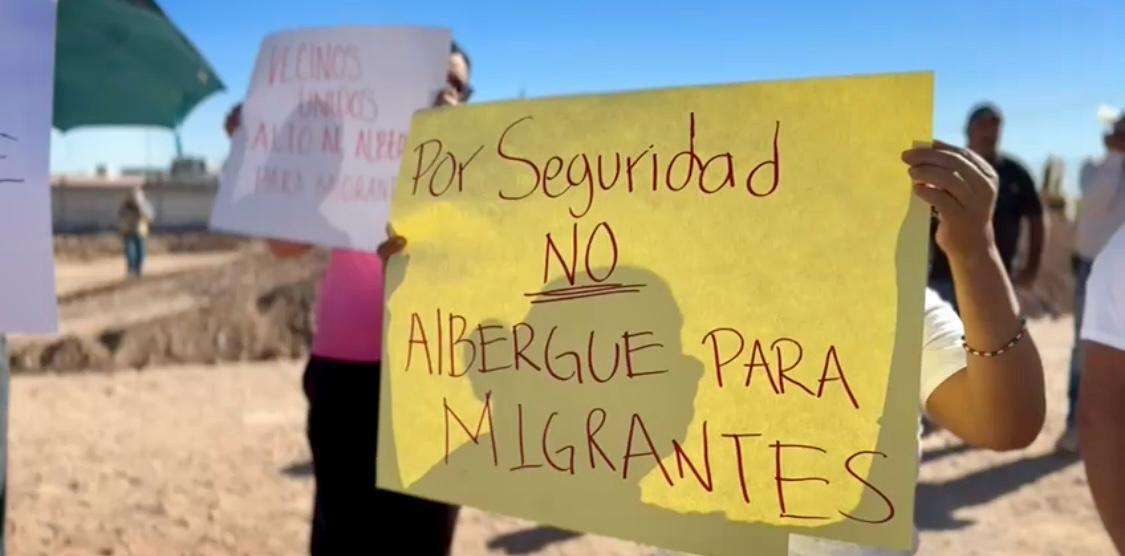 VECINOS
UNIDOS
ALTO AL ALBER
PARA MIGRANT
Por Seguridad
NO
AlBERGUE PARA
MIGRANTES